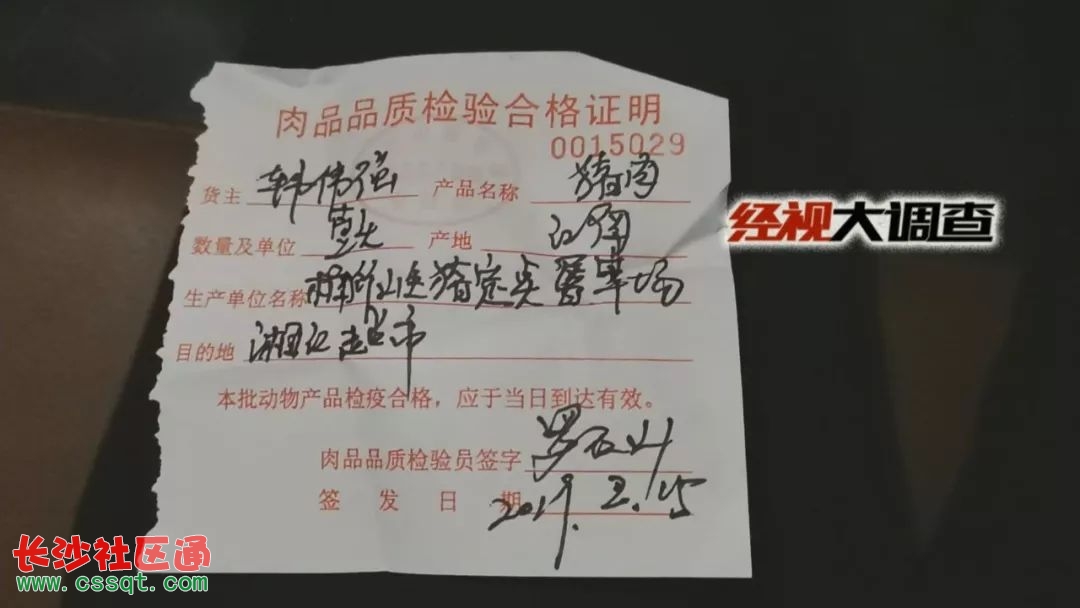 肉品品质检验合格证明
0015029
货主 韩伟强 产品名称 猪肉
数量及单位 产地
生产单位名称 生猪定点屠宰场
目的地 湘江超市
本批动物产品检疫合格，应于当日到达有效。
肉品品质检验员签字 罗石山
签发日期 2019.2.15
经视大调查
长沙社区通
www.cssqt.com